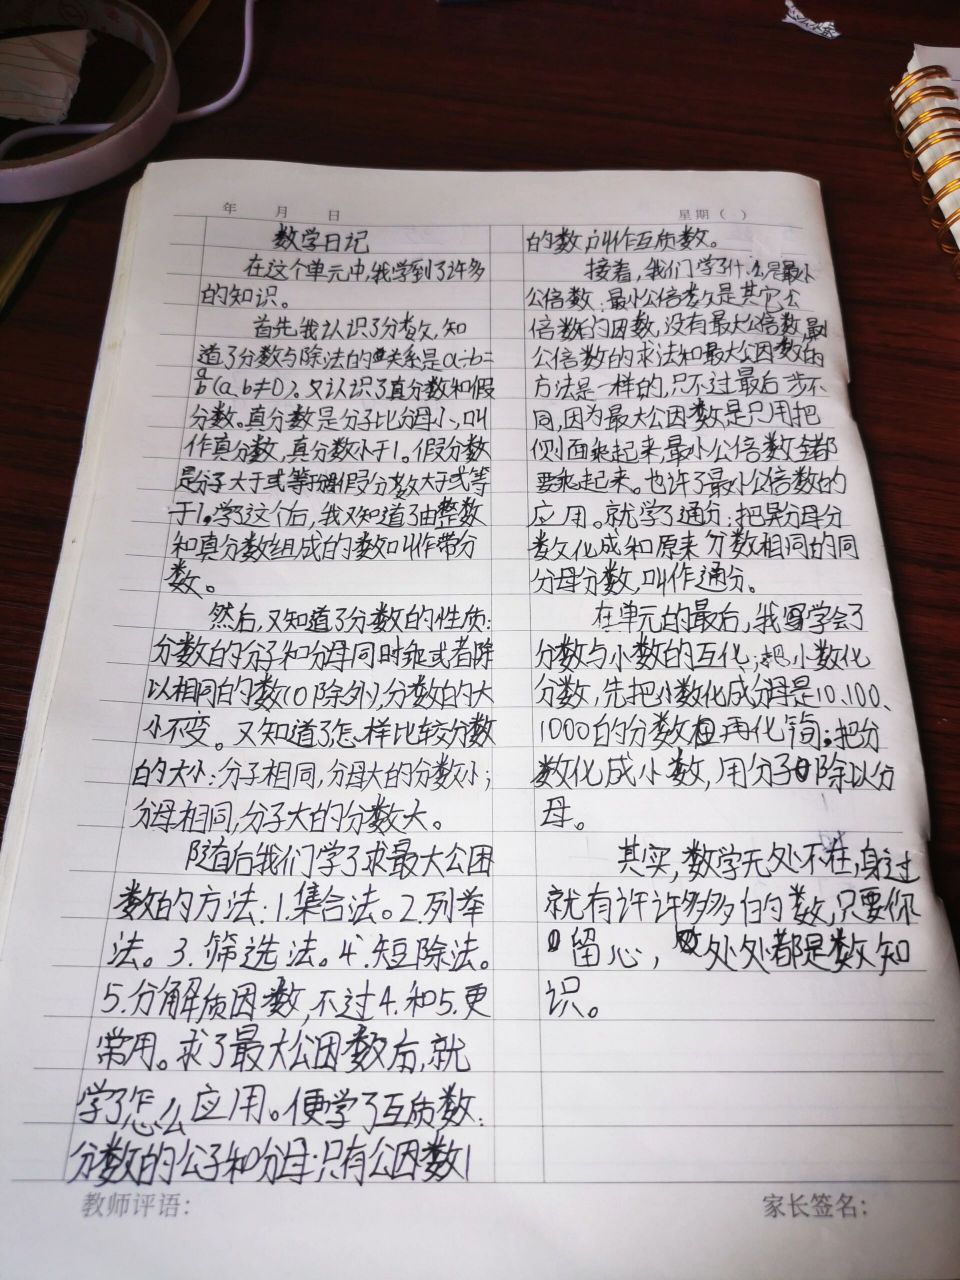 年 月 日
星期（ ）
数学日记
在这个单元中,我学到了许多
的知识。
首先,我认识了分数,知
道了分数与除法的关系是a÷b=
a/b(a、b≠0)。又认识了真分数和假
分数。真分数是分子比分母小,叫
作真分数,真分数小于1。假分数
是分子大于或等于 假分数大于或等
于1。学了这个后,我又知道了由整数
和真分数组成的数叫作带分
数。
然后,又知道了分数的性质:
分数的分子和分母同时乘或者除
以相同的数(0除外),分数的大
小不变。又知道了怎样比较分数
的大小:分子相同,分母大的分数小;
分母相同,分子大的分数大。
随后我们学了求最大公因
数的方法:1.集合法。2.列举
法。3.筛选法。4.短除法。
5.分解质因数,不过4.和5.更
常用。求了最大公因数后,就
学了怎么应用。便学了互质数:
分数的公子和分母:只有公因数1
的数,叫作互质数。
接着,我们学了什么是最小
公倍数:最小公倍数是其它公
倍数的因数,没有最大公倍数,最
公倍数的求法和最大公因数的
方法是一样的,只不过最后一步不
同,因为最大公因数是只用把
侧面乘起来,最小公倍数全都
要乘起来。也许了最小公倍数的
应用。就学了通分:把异分母分
数化成和原来分数相同的同
分母分数,叫作通分。
在单元的最后,我学会了
分数与小数的互化;把小数化
分数,先把小数化成分母是10、100、
1000的分数,再化简;把分
数化成小数,用分子除以分
母。
其实,数学无处不在,身过
就有许许多多的数,只要你
留心,处处都是数知
识。
教师评语:
家长签名: